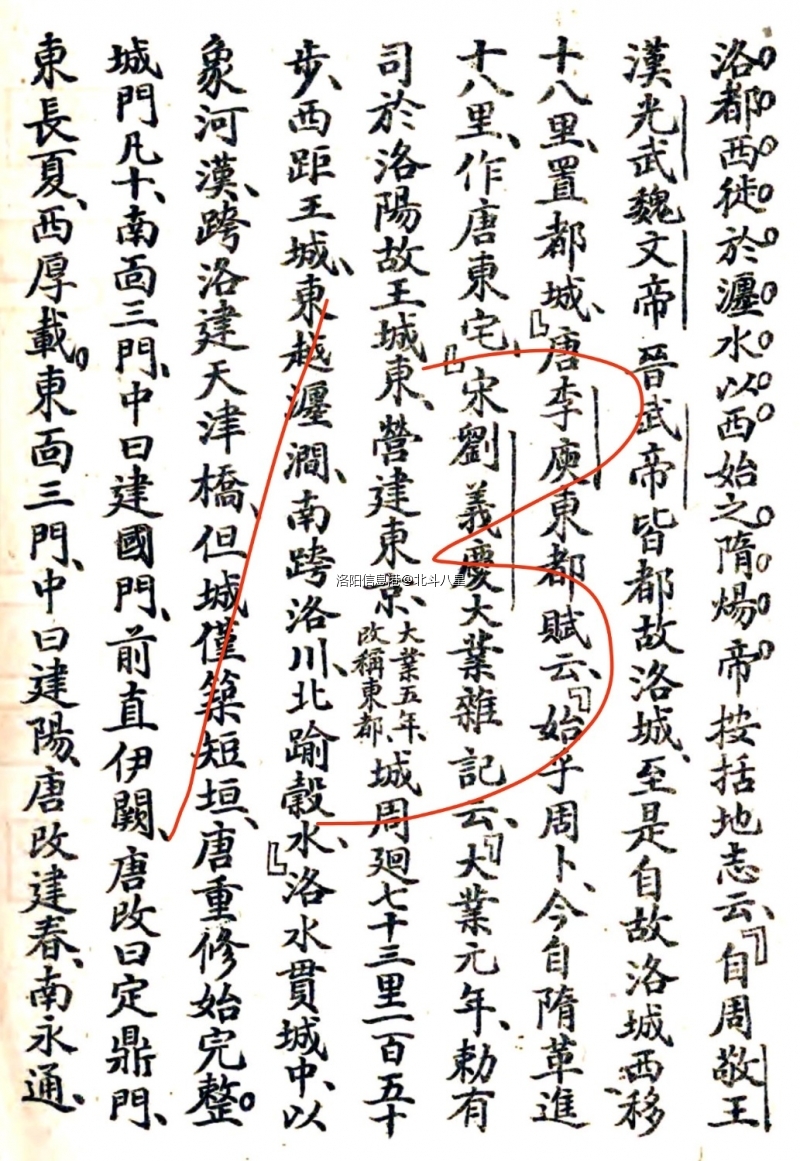 洛都西徙於瀍水以西始之隋煬帝按括地志云、『自周敬王
漢光武魏文帝晉武帝皆都故洛城、至是自故洛城西移
十八里、置都城、』唐李庾東都賦云、『始乎周卜、今自隋革進
十八里、作唐東宅、』宋劉義慶大業雜記云、『大業元年、勅有
司於洛陽故王城東、營建東京、大業五年、改稱東都、城周廻七十三里一百五十
步、西距王城、東越瀍澗、南跨洛川、北踰穀水、』洛水貫城中、以
象河漢、跨洛建天津橋、但城僅築短垣、唐重修始完整。
城門凡十、南面三門、中曰建國門、前直伊闕、唐改曰定鼎門、
東長夏、西厚載。東面三門、中曰建陽、唐改建春、南永通、
洛阳信息港@北斗八星